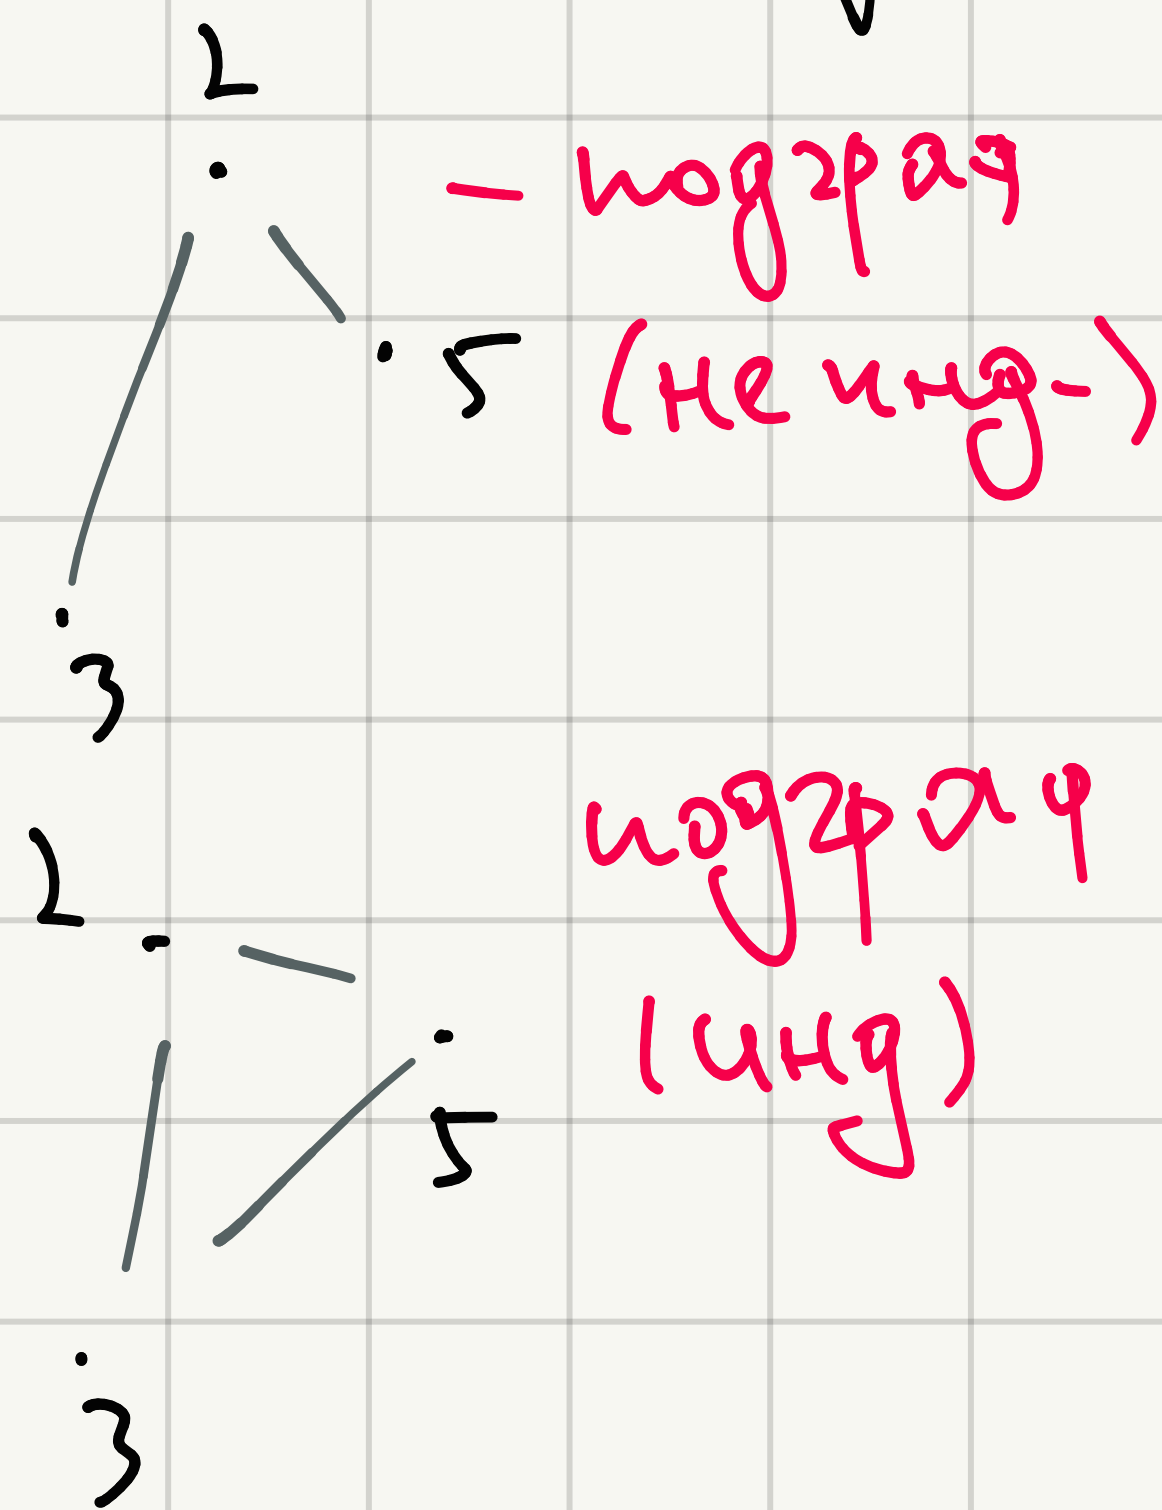 2
- подграф
5
(не инд-)
3
подграф
2
(инд)
5
3